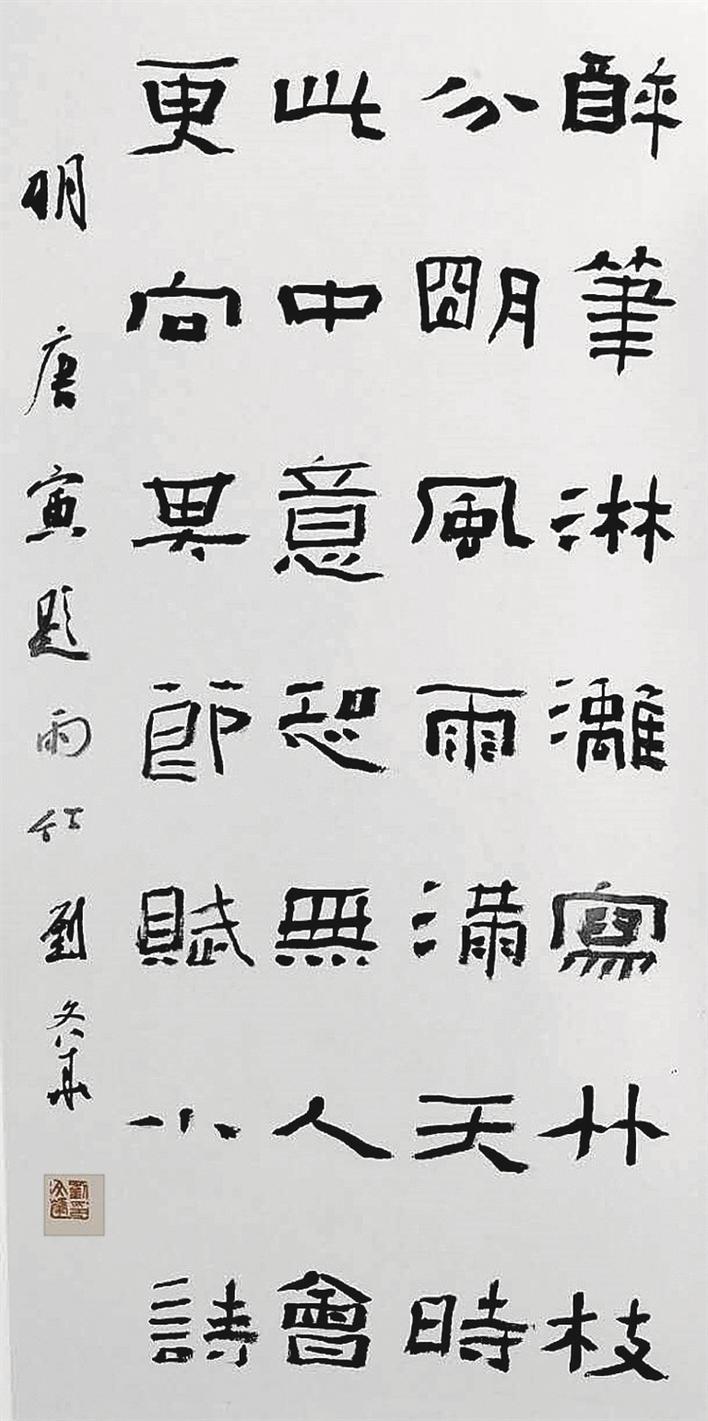 醉筆淋灕寫竹枝
分明風雨滿天時
此中意恐無人會
更向郎賦小詩
明唐寅題雨竹劉華